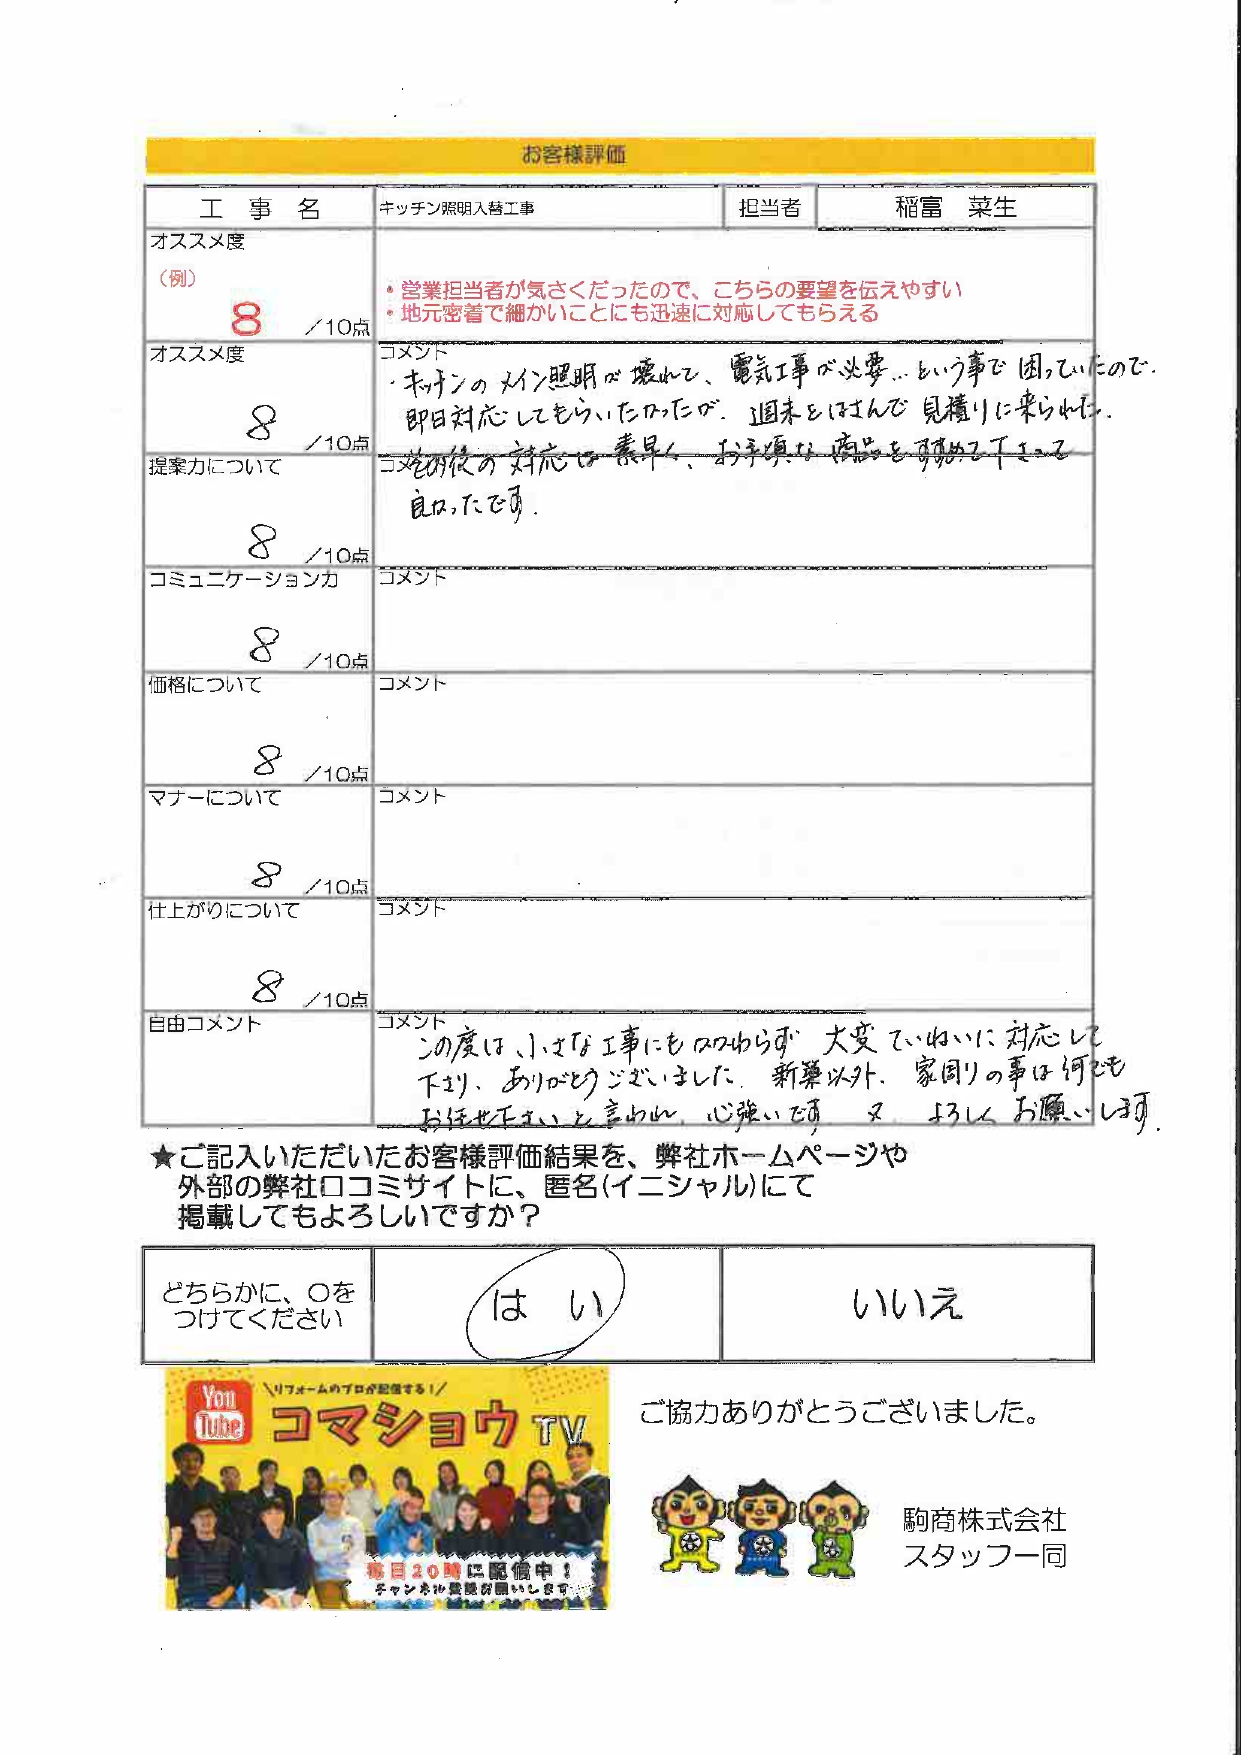 お客様評価
工 事 名 キッチン照明入替工事 担当者 稲富 菜生
オススメ度
(例)
8 /10点
・営業担当者が気さくだったので、こちらの要望を伝えやすい
・地元密着で細かいことにも迅速に対応してもらえる
オススメ度
8 /10点
コメント
・キッチンのメイン照明が壊れて、電気工事が必要…という事で困っていたので.
即日対応してもらいたかったが、週末をはさんで見積りに来られた.
提案力について
8 /10点
コメント
その後の対応は素早く、お手頃な商品をすすめて下さって
良かったです.
コミュニケーション力
8 /10点
コメント
価格について
8 /10点
コメント
マナーについて
8 /10点
コメント
仕上がりについて
8 /10点
コメント
自由コメント
コメント
この度は、小さな工事にもかかわらず 大変ていねいに対応して
下さり、ありがとうございました. 新築以外、家周りの事は何でも
お任せ下さいと言われ、心強いです 又 よろしくお願いします.
★ご記入いただいたお客様評価結果を、弊社ホームページや
外部の弊社口コミサイトに、匿名(イニシャル)にて
掲載してもよろしいですか?
どちらかに、〇を
つけてください
は い
いいえ
You
Tube
\リフォームのプロが配信する!/
コマショウTV
毎日20時に配信中!
チャンネル登録お願いします
ご協力ありがとうございました。
駒商株式会社
スタッフ一同